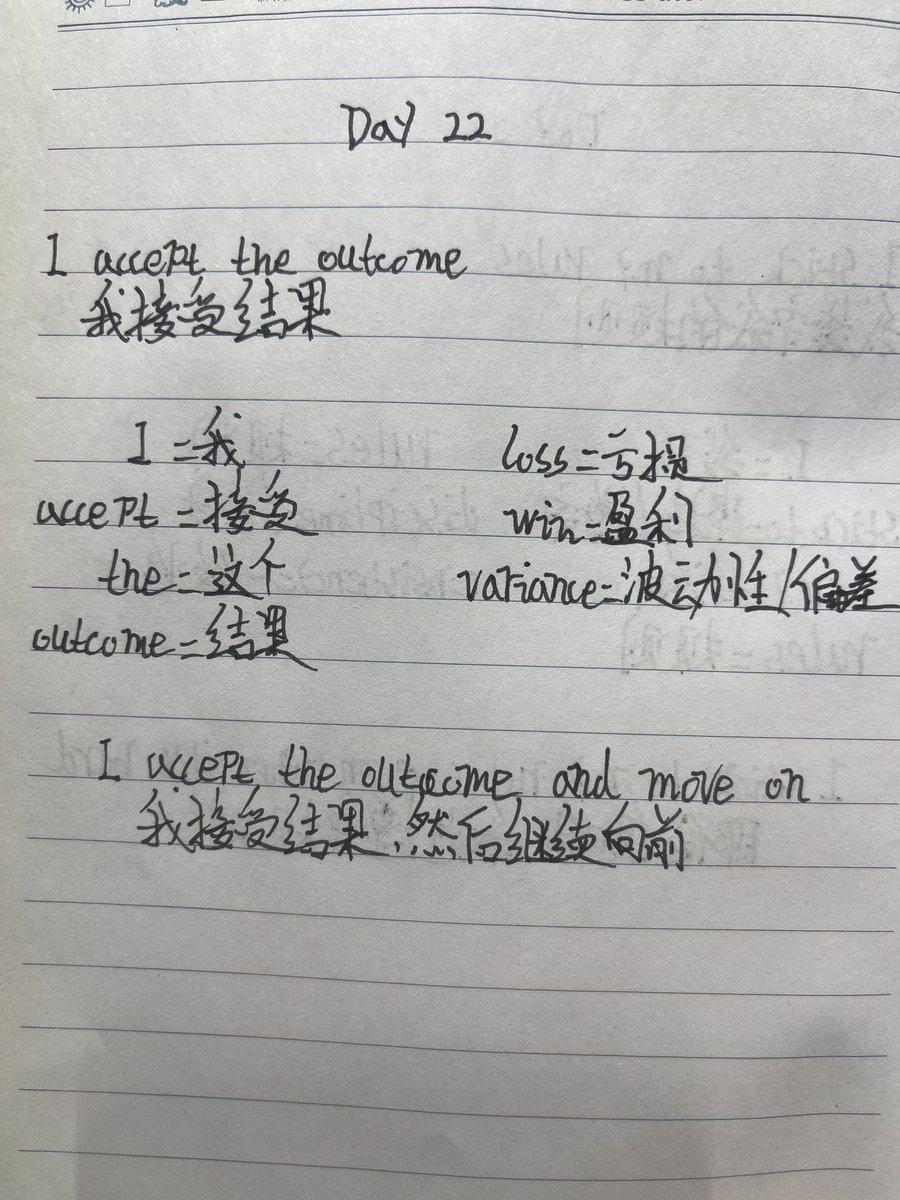 Day 22
I accept the outcome
我接受结果
I=我
accept=接受
the=这个
outcome=结果
loss=亏损
win=盈利
variance=波动性/偏差
I accept the outcome and move on
我接受结果,然后继续向前